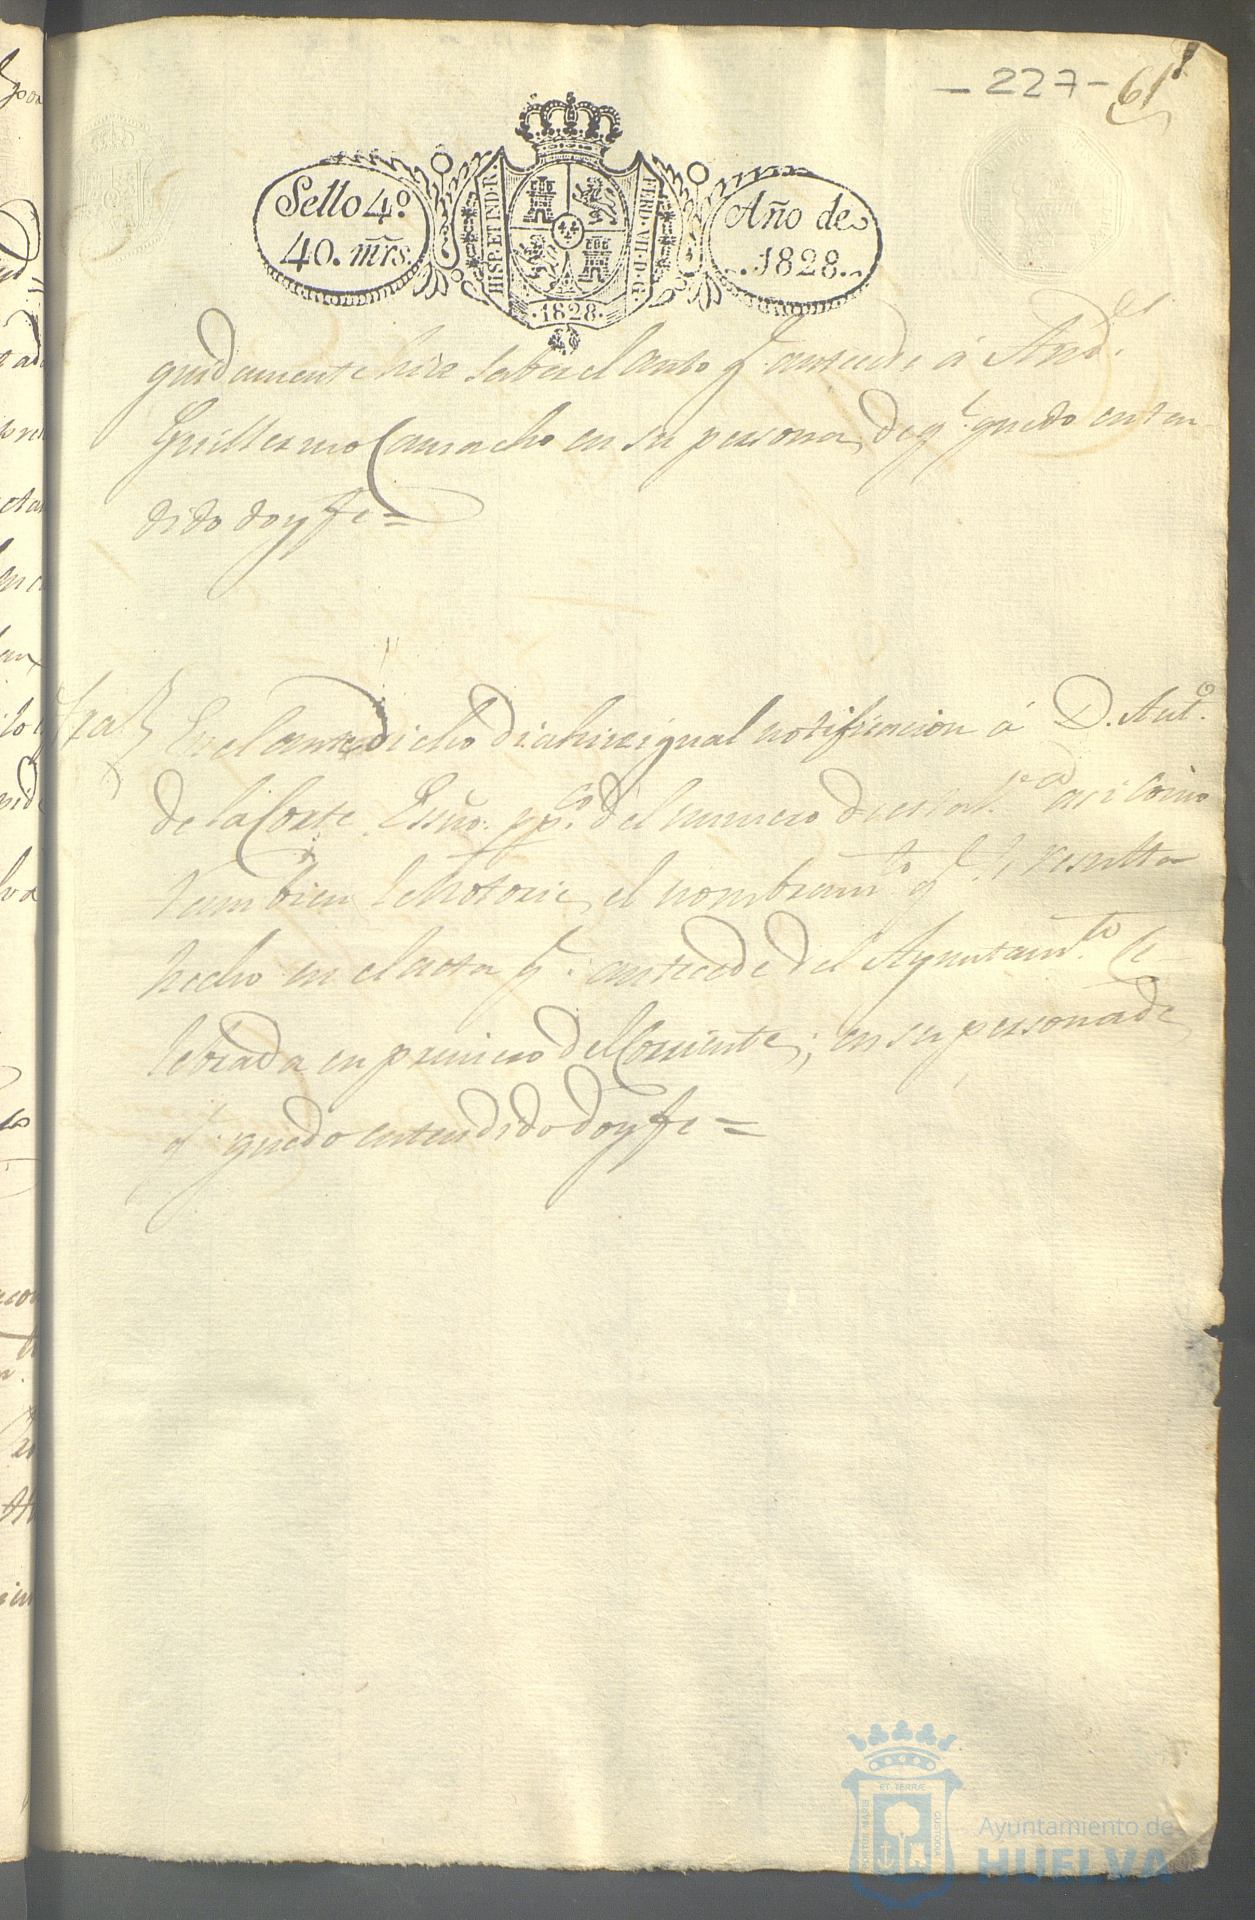 - 227 - 61
Sello 4º.
40. mrs.
HISP. ET IND. R.
FERD. VII. D. G.
.1828.
Año de
.1828.
guidamente hice saber el auto q. antecede á And.es
Guillermo Camacho en su persona, de q.e quedó enten
dido doy fe =
Otra
En el antedicho dia hice igual notificacion á D. Ant.o
de la Corte Essno. pp.co del numero de esta asi como
tambien le notorie, el nombram.to q.e resulta
hecho en el acta q.e antecede del Ayuntam.to Ce-
lebrada en primero del Corriente; en su persona de
q.e quedó entendido doy fe =
ET TERRÆ
Ayuntamiento de
HUELVA